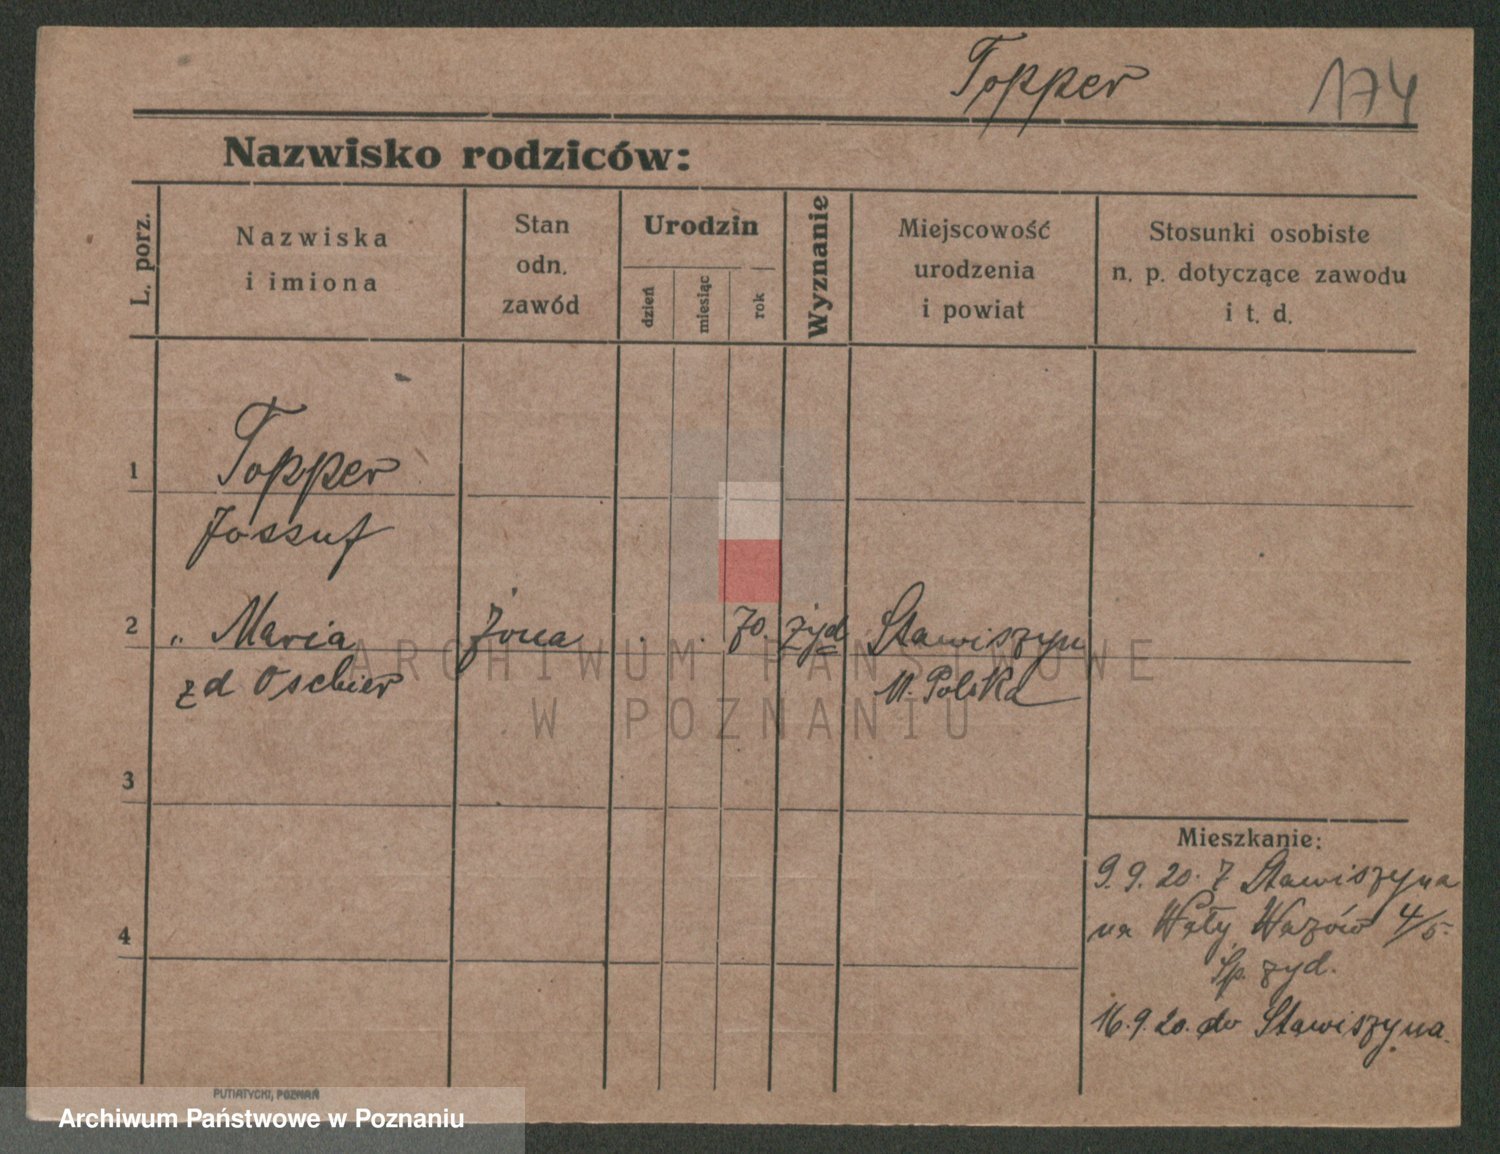 Topper 174
Nazwisko rodziców:
L. porz.
Nazwiska
i imiona
Stan
odn.
zawód
Urodzin
dzień
miesiąc
rok
Wyznanie
Miejscowość
urodzenia
i powiat
Stosunki osobiste
n. p. dotyczące zawodu
i t. d.
1 Topper
Jossuf
2 „ Maria żona . . 70. żyd Stawiszyn
zd Oschier Polska
3
Mieszkanie:
9.9.20. Z Stawiszyna
na Wały Wazów 4/5.
Sp. żyd.
4
16.9.20. do Stawiszyna.
PUTIATYCKI, POZNAŃ
ARCHIWUM PAŃSTWOWE
W POZNANIU
Archiwum Państwowe w Poznaniu